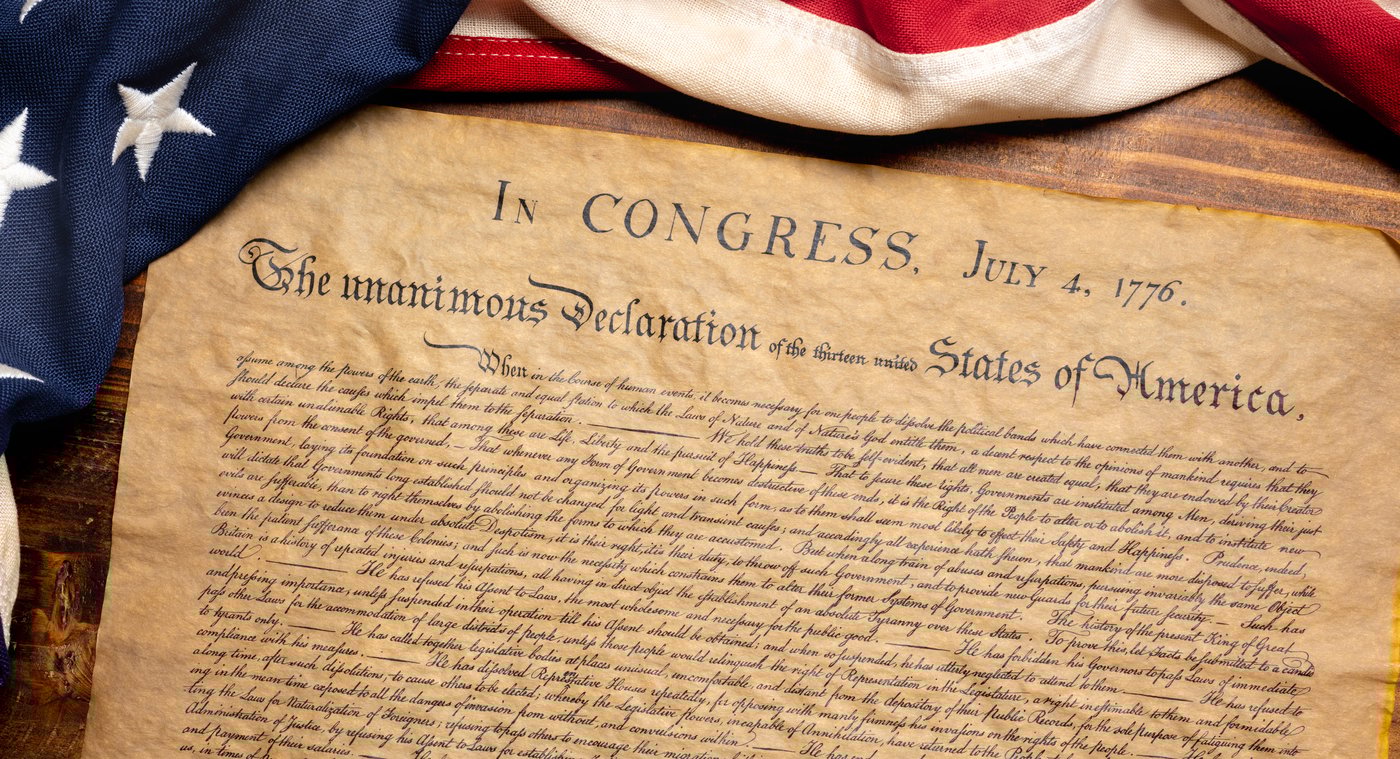 In CONGRESS, July 4, 1776.
The unanimous Declaration of the thirteen united States of America,
When in the Course of human events, it becomes necessary for one people to dissolve the political bands which have connected them with another, and to
assume among the powers of the earth, the separate and equal station to which the Laws of Nature and of Nature's God entitle them, a decent respect to the opinions of mankind requires that they
should declare the causes which impel them to the separation. — We hold these truths to be self-evident, that all men are created equal, that they are endowed by their Creator
with certain unalienable Rights, that among these are Life, Liberty and the pursuit of Happiness — That to secure these rights, Governments are instituted among Men, deriving their just
powers from the consent of the governed, — That whenever any Form of Government becomes destructive of these ends, it is the Right of the People to alter or to abolish it, and to institute new
Government, laying its foundation on such principles and organizing its powers in such form, as to them shall seem most likely to effect their Safety and Happiness. Prudence, indeed,
will dictate that Governments long established should not be changed for light and transient causes; and accordingly all experience hath shewn, that mankind are more disposed to suffer, while
evils are sufferable, than to right themselves by abolishing the forms to which they are accustomed. But when a long train of abuses and usurpations, pursuing invariably the same Object
evinces a design to reduce them under absolute Despotism, it is their right, it is their duty, to throw off such Government, and to provide new Guards for their future security. — Such has
been the patient sufferance of these Colonies; and such is now the necessity which constrains them to alter their former Systems of Government. The history of the present King of Great
Britain is a history of repeated injuries and usurpations, all having in direct object the establishment of an absolute Tyranny over these States. To prove this, let Facts be submitted to a candid
world. — He has refused his Assent to Laws, the most wholesome and necessary for the public good. — He has forbidden his Governors to pass Laws of immediate
and pressing importance, unless suspended in their operation till his Assent should be obtained; and when so suspended, he has utterly neglected to attend to them. — He has refused to
pass other Laws for the accommodation of large districts of people, unless those people would relinquish the right of Representation in the Legislature, a right inestimable to them and formidable
to tyrants only. — He has called together legislative bodies at places unusual, uncomfortable, and distant from the depository of their public Records, for the sole purpose of fatiguing them into
compliance with his measures. — He has dissolved Representative Houses repeatedly, for opposing with manly firmness his invasions on the rights of the people. —
along time, after such dissolutions, to cause others to be elected; whereby the Legislative powers, incapable of Annihilation, have returned to the
ing in the mean time exposed to all the dangers of invasion from without, and convulsions within. — He has
ting the Laws for Naturalization of Foreigners; refusing to pass others to encourage their
Administration of Justice, by refusing his Assent to Laws for
and payment of their salaries. —
us, in times of